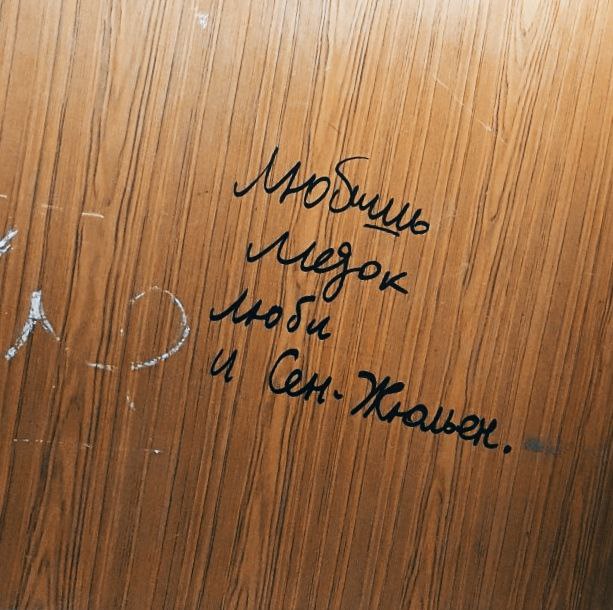 Любишь
Медок
люби
и Сен-Жюльен.